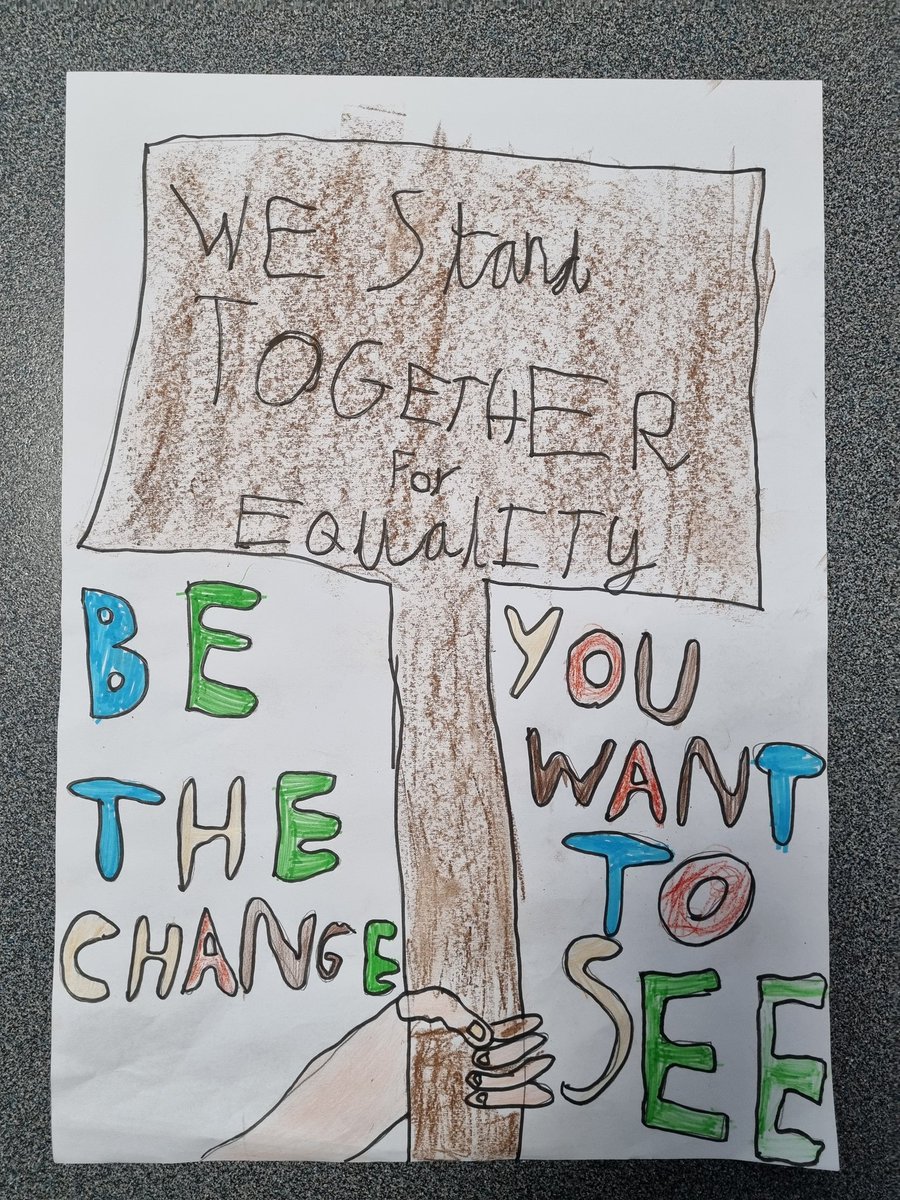 WE Stand
TOGETHER
For
EQualITy
BE
THE
CHANGE
YOU
WANT
TO
SEE